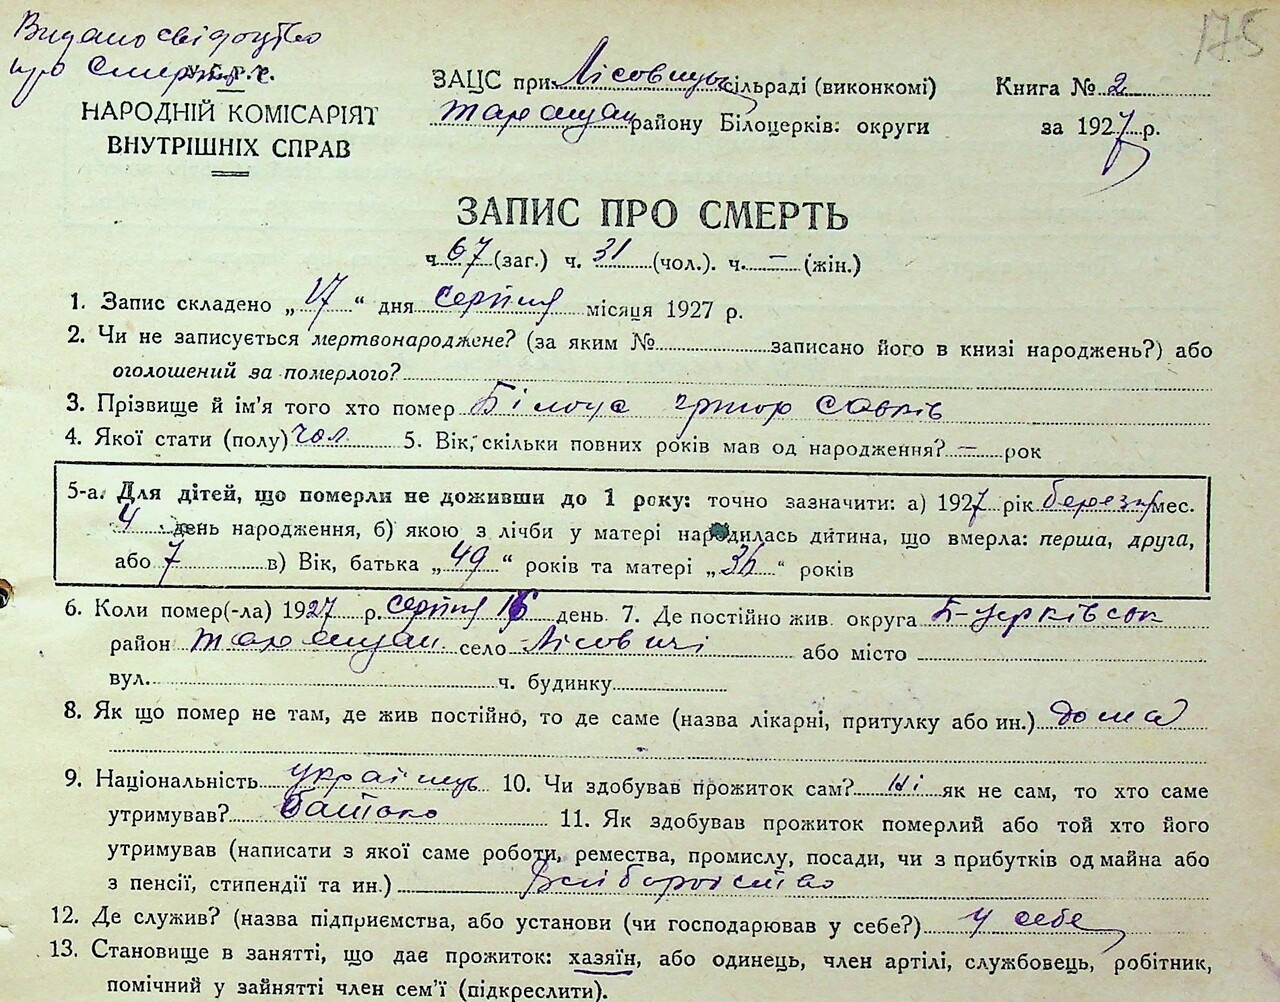 175
Видано свідоцтво
про смерть
У.С.Р.Р.
НАРОДНІЙ КОМІСАРІЯТ
ВНУТРІШНІХ СПРАВ
ЗАЦС при Лісовицькій сільраді (виконкомі)
Таращан району Білоцерків: округи
Книга № 2
за 1927 р.
ЗАПИС ПРО СМЕРТЬ
ч. 67 (заг.) ч. 31 (чол.). ч. – (жін.)
1. Запис складено „17“ дня серпня місяця 1927 р.
2. Чи не записується мертвонароджене? (за яким № записано його в книзі народжень?) або
оголошений за померлого?
3. Прізвище й ім'я того хто помер Білоус Григор Савків
4. Якої стати (полу) чол 5. Вік, скільки повних років мав од народження? – рок
5-а. Для дітей, що померли не доживши до 1 року: точно зазначити: а) 1927 рік березня мес.
4 день народження, б) якою з лічби у матері народилась дитина, що вмерла: перша, друга,
або 7 в) Вік, батька „49“ років та матері „36“ років
6. Коли помер(-ла) 1927 р. серпня 16 день 7. Де постійно жив округа Б-Церківськ
район Таращан село Лісовичі або місто
вул. ч. будинку
8. Як що помер не там, де жив постійно, то де саме (назва лікарні, притулку або ин.) дома
9. Національність українець 10. Чи здобував прожиток сам? Ні як не сам, то хто саме
утримував? батько 11. Як здобував прожиток померлий або той хто його
утримував (написати з якої саме роботи, ремества, промислу, посади, чи з прибутків од майна або
з пенсії, стипендії та ин.) Хліборобство
12. Де служив? (назва підприємства, або установи (чи господарював у себе?) у себе
13. Становище в занятті, що дає прожиток: хазяїн, або одинець, член артілі, службовець, робітник,
помічний у зайнятті член сем'ї (підкреслити).